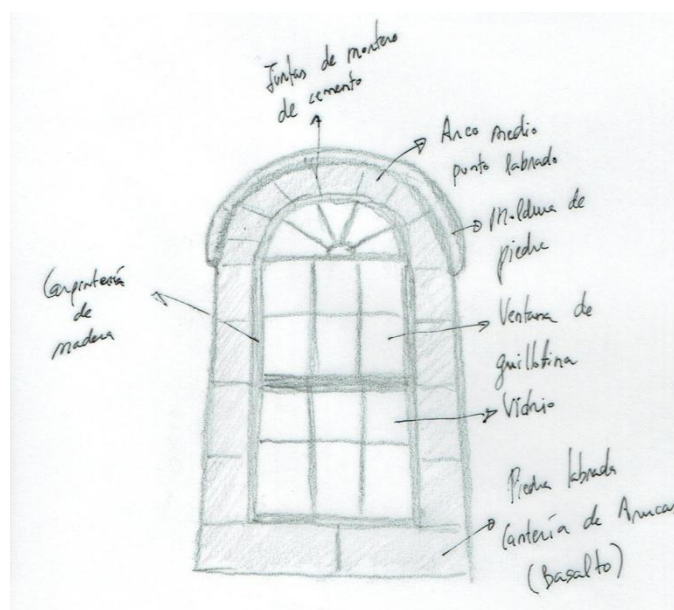 Juntas de mortero
de cemento
Arco medio
punto labrado
Moldura de
piedra
Carpintería
de
madera
Ventana de
guillotina
Vidrio
Piedra labrada
Cantería de Arucas
(Basalto)